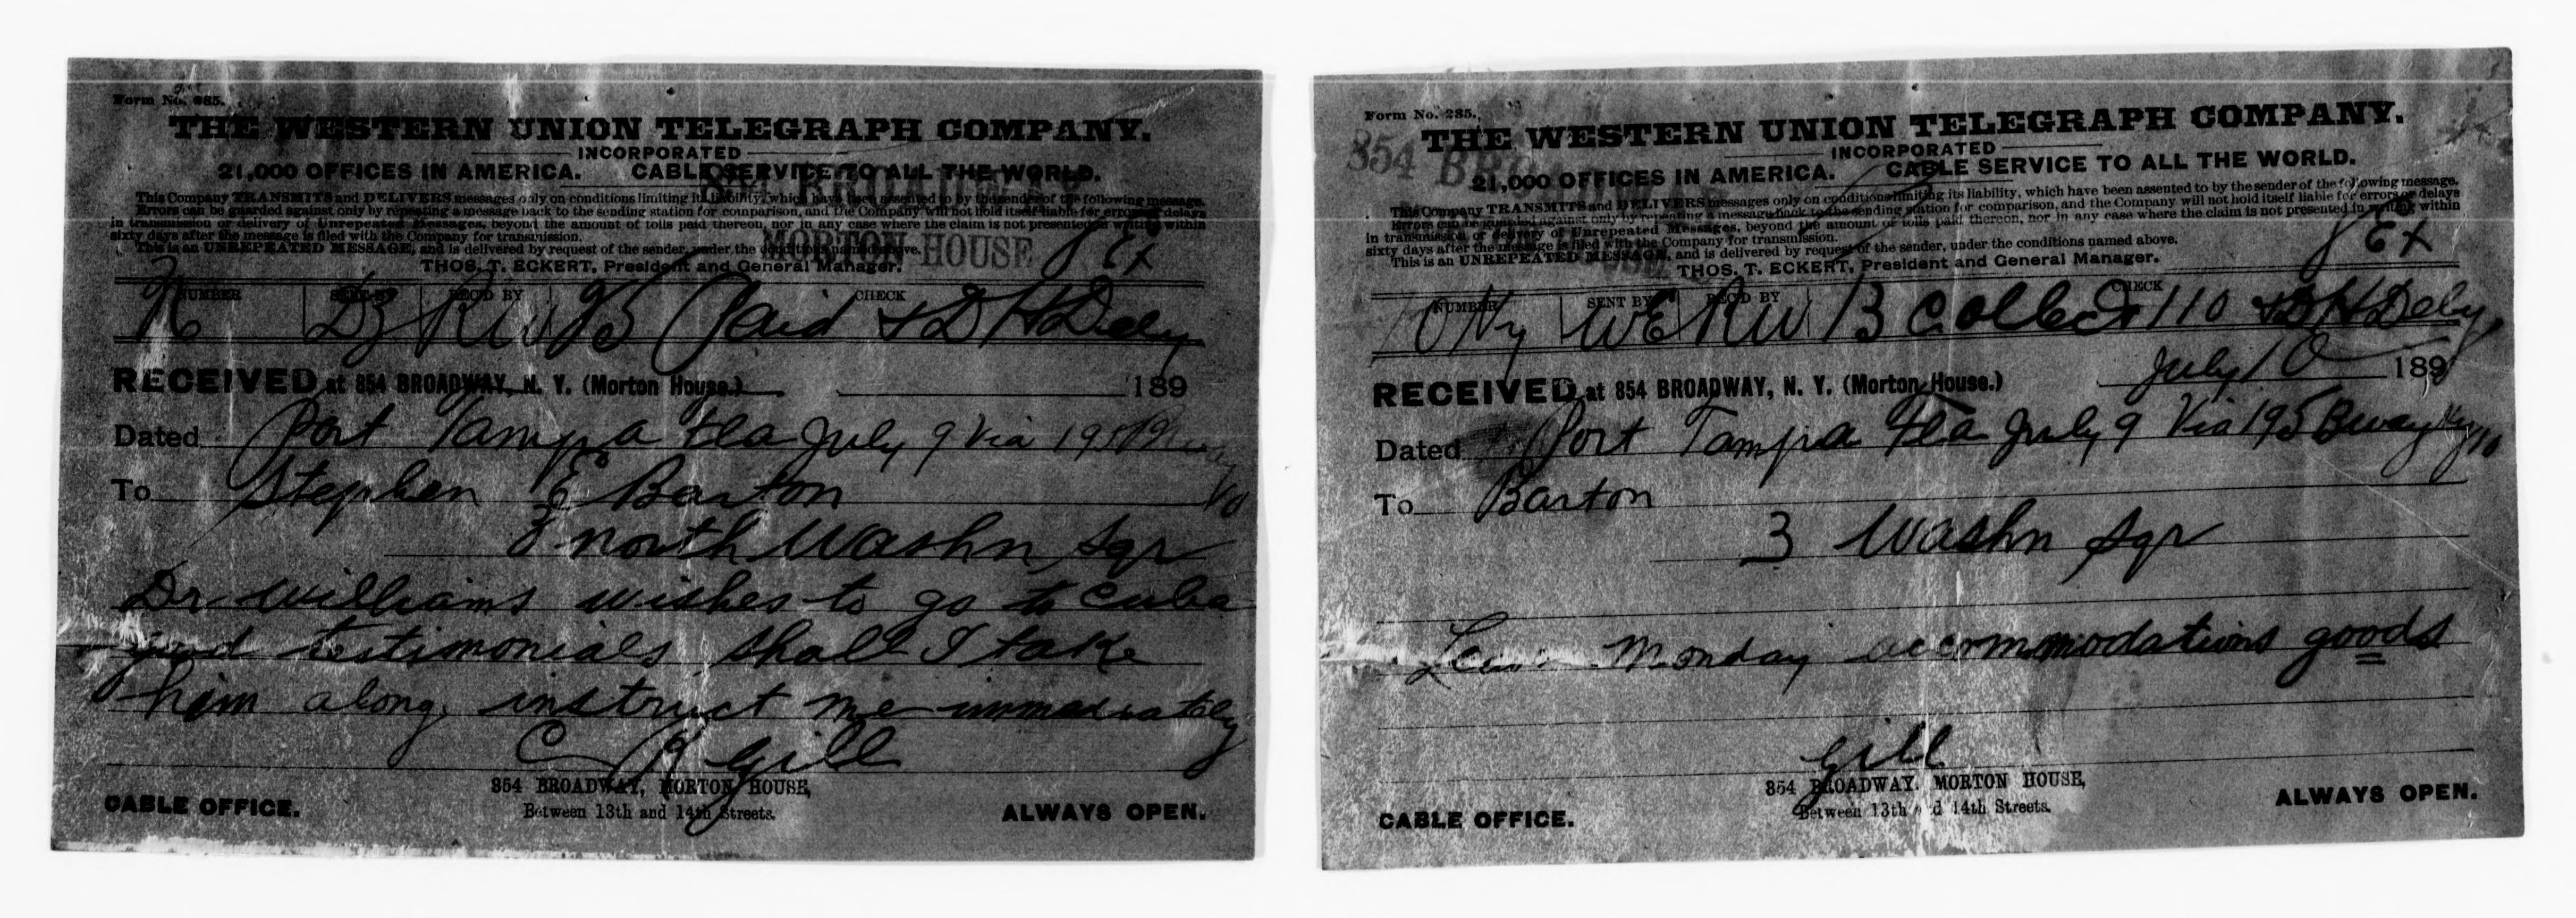 Form No. 285.
THE WESTERN UNION TELEGRAPH COMPANY.
INCORPORATED
21,000 OFFICES IN AMERICA. CABLE SERVICE TO ALL THE WORLD.
This Company TRANSMITS and DELIVERS messages only on conditions limiting its liability, which have been assented to by the sender of the following message.
Errors can be guarded against only by repeating a message back to the sending station for comparison, and the Company will not hold itself liable for errors or delays
in transmission or delivery of Unrepeated Messages, beyond the amount of tolls paid thereon, nor in any case where the claim is not presented in writing within
sixty days after the message is filed with the Company for transmission.
This is an UNREPEATED MESSAGE, and is delivered by request of the sender, under the conditions named above.
THOS. T. ECKERT, President and General Manager.
854 BROADWAY
MORTON HOUSE
8 Ex
NUMBER SENT BY REC'D BY CHECK
Paid & DH Dely
RECEIVED at 854 BROADWAY, N. Y. (Morton House.) 189
Dated Port Tampa Fla July 9 Via 195 Bway
10
To Stephen E Barton
3 north Washn Sqr
Dr Williams wishes to go to Cuba
good testimonials shall I take
him along, instruct me immediately
C R Gill
854 BROADWAY, MORTON HOUSE,
Between 13th and 14th Streets.
CABLE OFFICE. ALWAYS OPEN.
Form No. 285.
854 BROADWAY
THE WESTERN UNION TELEGRAPH COMPANY.
INCORPORATED
21,000 OFFICES IN AMERICA. CABLE SERVICE TO ALL THE WORLD.
This Company TRANSMITS and DELIVERS messages only on conditions limiting its liability, which have been assented to by the sender of the following message.
Errors can be guarded against only by repeating a message back to the sending station for comparison, and the Company will not hold itself liable for errors or delays
in transmission or delivery of Unrepeated Messages, beyond the amount of tolls paid thereon, nor in any case where the claim is not presented in writing within
sixty days after the message is filed with the Company for transmission.
This is an UNREPEATED MESSAGE, and is delivered by request of the sender, under the conditions named above.
THOS. T. ECKERT, President and General Manager.
8 Ex
NUMBER SENT BY REC'D BY CHECK
10 Ny WE RW 13 Collect 110 & DH Dely
RECEIVED at 854 BROADWAY, N. Y. (Morton House.) July 10 1898
Dated Port Tampa Fla July 9 Via 195 Bway Ny 10
To Barton
3 Washn Sqr
Leave Monday accommodations goods
Gill
854 BROADWAY. MORTON HOUSE,
Between 13th and 14th Streets.
CABLE OFFICE. ALWAYS OPEN.